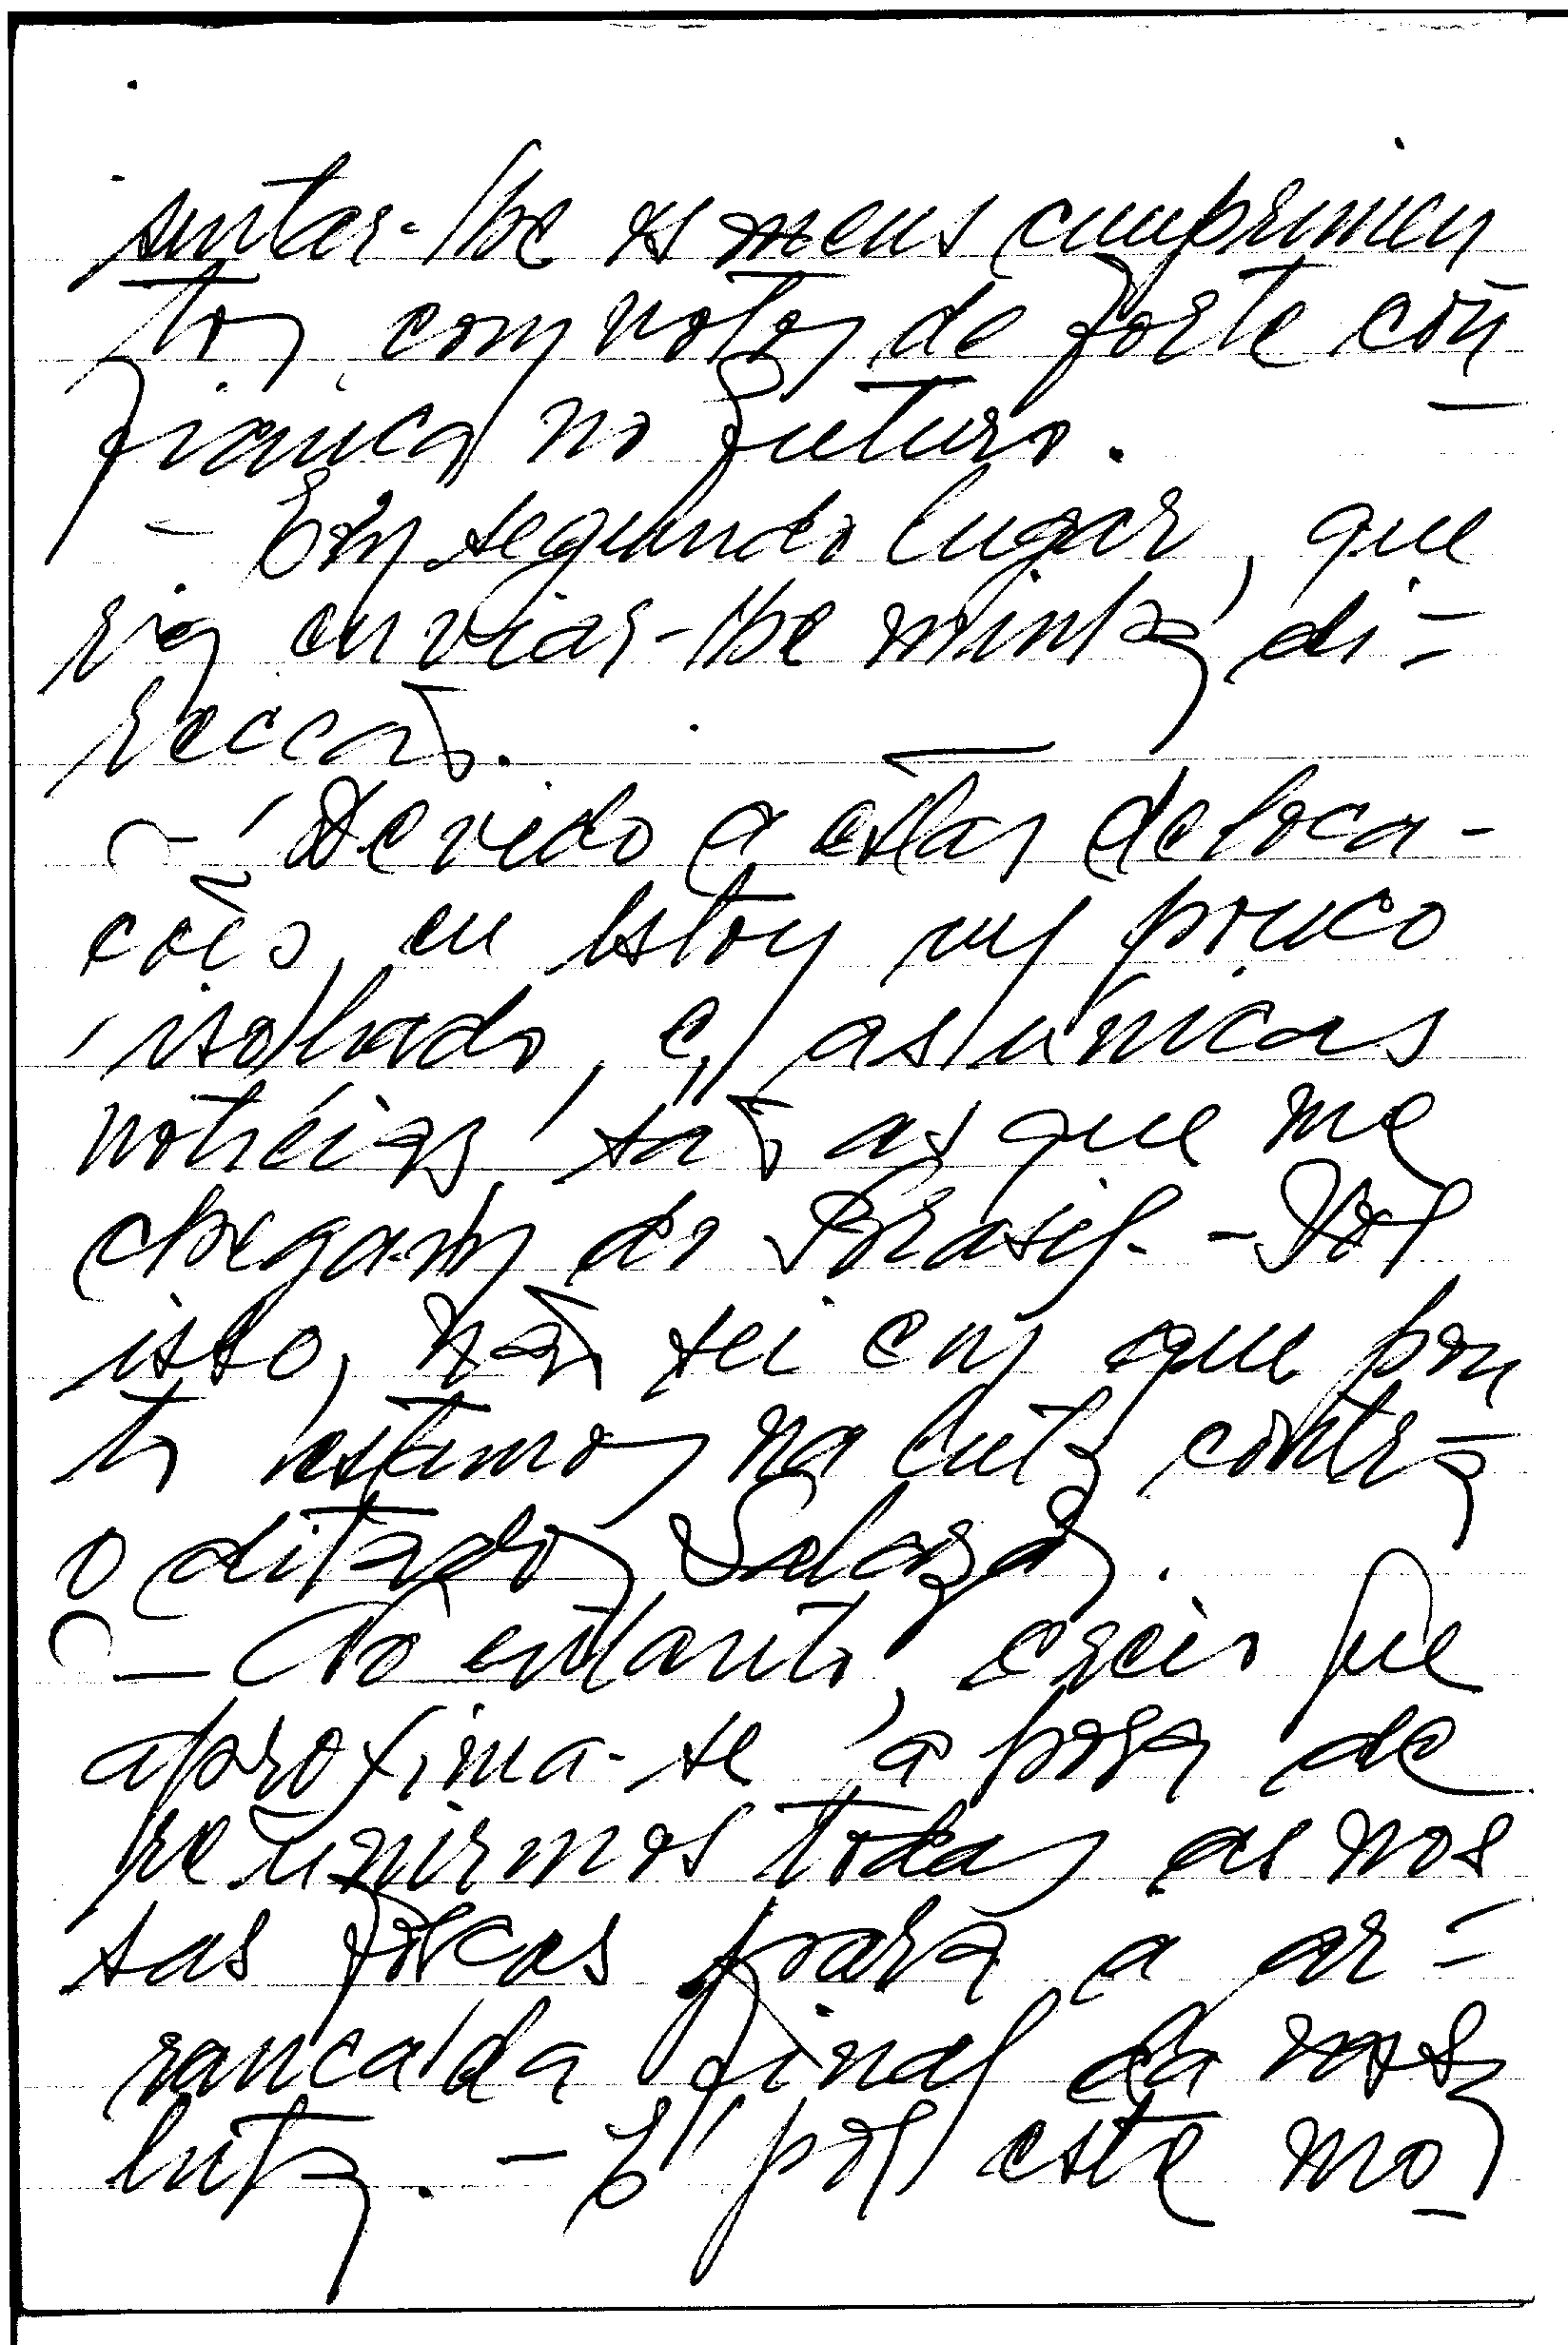 sentar-lhe os meus cumprimen
tos, com votos de forte con
fiança no futuro.
- Em segundo lugar, que
ria enviar-lhe minha di-
recção.
- Devido a estas deloca-
ções, eu estou um pouco
isolado, e, as únicas
noticias são as que me
chegam do Brasil. - Por
isso, não sei em que pon
to estamos na luta contra
o ditador Salazar.
- No entanto, creio que
aproxima-se a hora de
reunirmos todas as nos
sas forças para a ar-
rancada final da nossa
luta. - É por este mo